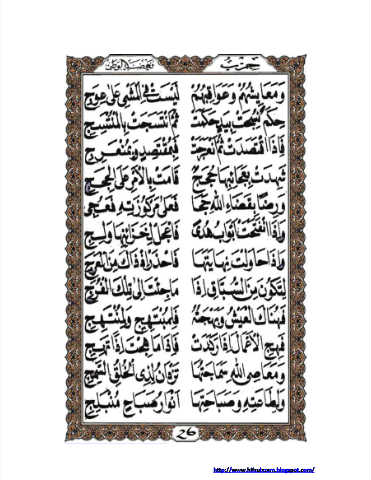 وَمَعَايِشُهُمْ وَعَوَاقِبُهُمْ لَيْسَتْ فِي الْمَشْيِ عَلَى عِوَجِ
حِكَمٌ نُسِجَتْ بِيَدٍ حَكَمَتْ ثُمَّ انْتَسَجَتْ بِالْمُنْتَسِجِ
فَإِذَا اقْتَصَدَتْ ثُمَّ انْعَرَجَتْ فَبِمُقْتَصِدٍ وَبِمُنْعَرِجِ
شَهِدَتْ بِعَجَائِبِهَا حُجَجٌ قَامَتْ بِالْأَمْرِ عَلَى الْحِجَجِ
وَرِضًا بِقَضَاءِ اللهِ حِجًا فَعَلَى مَرْكُوزَتِهِ فَعُجِ
وَإِذَا انْفَتَحَتْ أَبْوَابُ هُدًى فَاعْجَلْ لِخَزَائِنِهَا وَلِجِ
وَإِذَا حَاوَلْتَ نِهَايَتَهَا فَاحْذَرْ إِذْ ذَاكَ مِنَ الْعَرَجِ
لِتَكُونَ مِنَ السُّبَّاقِ إِذَا مَا جِئْتَ إِلَى تِلْكَ الْفُرَجِ
فَهُنَاكَ الْعَيْشُ وَبَهْجَتُهُ فَلِمُبْتَهِجٍ وَلِمُنْتَهِجِ
فَهِجِ الْأَعْمَالَ إِذَا رَكَدَتْ فَإِذَا مَا هِجْتَ إِذًا تَهِجِ
وَمَعَاصِي اللهِ سَمَاجَتُهَا تَزْدَانُ لِذِي الْخُلُقِ السَّمِجِ
وَلِطَاعَتِهِ وَصَبَاحَتِهَا أَنْوَارُ صَبَاحٍ مُنْبَلِجِ
26
http://www.hifsulszam.blogspot.com/